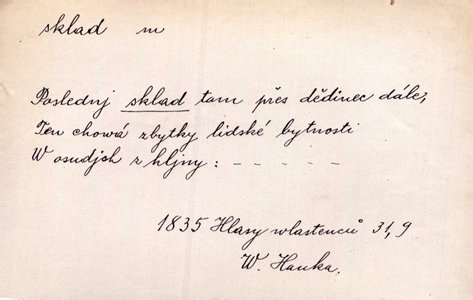 sklad m
Poslednj sklad tam přes dědinec dále,
Ten chowá zbytky lidské bytnosti
W osudjch z hljny: – – – – –
1835 Hlasy wlastenců 31,9
W. Hanka.